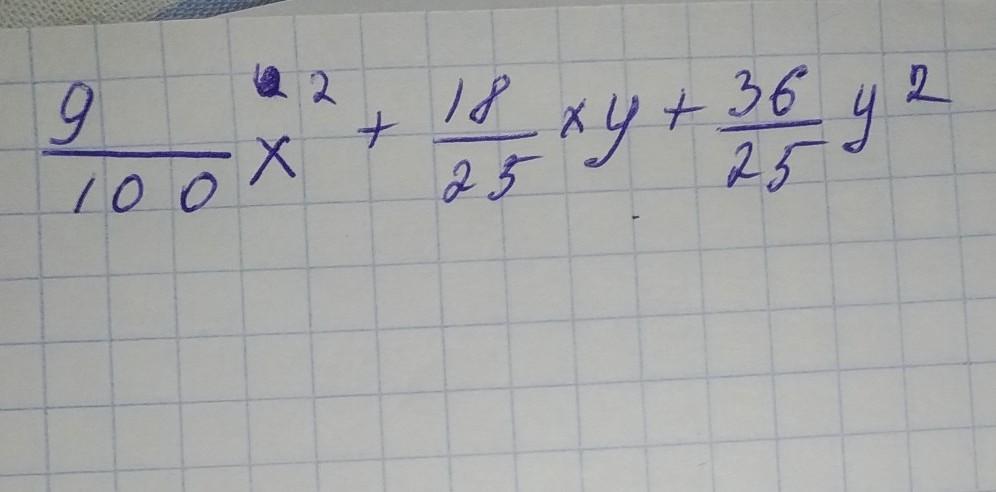 9/100 x² + 18/25 xy + 36/25 y²